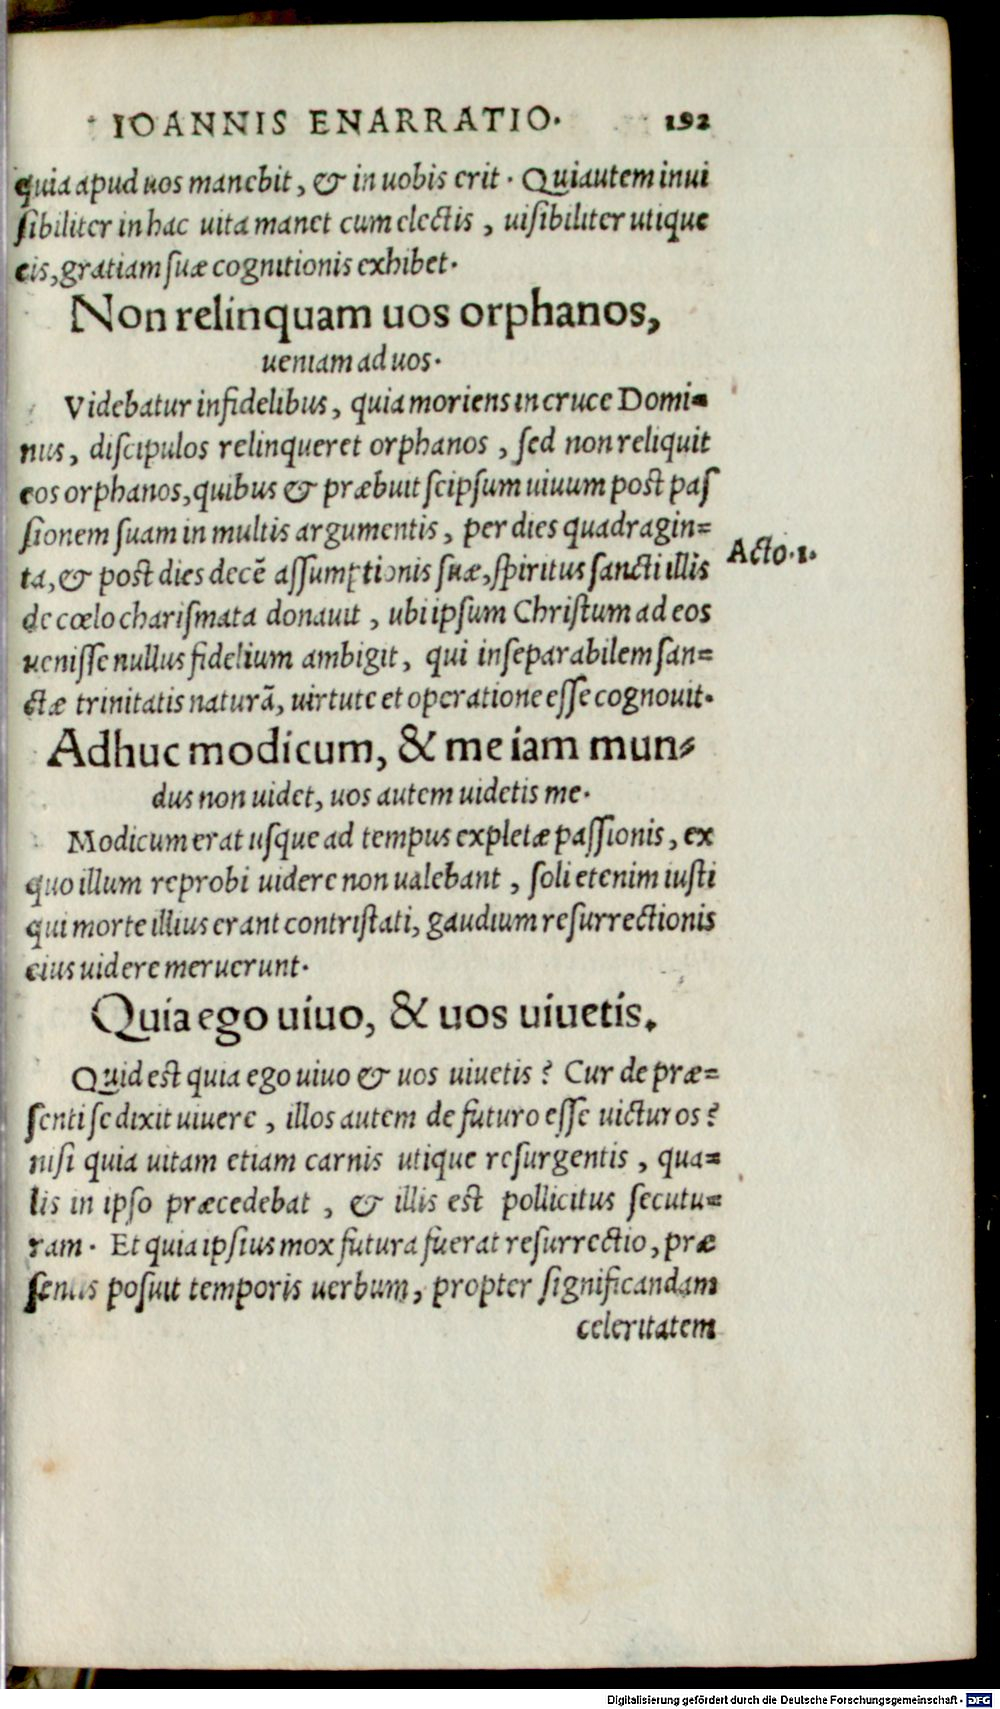 IOANNIS ENARRATIO. 192
quia apud uos manebit, & in uobis erit. Qui autem inui
sibiliter in hac uita manet cum electis, uisibiliter utique
eis, gratiam suæ cognitionis exhibet.
Non relinquam uos orphanos,
ueniam ad uos.
Videbatur infidelibus, quia moriens in cruce Domi=
nus, discipulos relinqueret orphanos, sed non reliquit
eos orphanos, quibus & præbuit seipsum uiuum post pas
sionem suam in multis argumentis, per dies quadragin=
ta, & post dies decẽ assumptionis suæ, spiritus sancti illis
Acto.1.
de cœlo charismata donauit, ubi ipsum Christum ad eos
uenisse nullus fidelium ambigit, qui inseparabilem san=
ctæ trinitatis naturã, uirtute et operatione esse cognouit.
Adhuc modicum, & me iam mun=
dus non uidet, uos autem uidetis me.
Modicum erat usque ad tempus expletæ passionis, ex
quo illum reprobi uidere non ualebant, soli etenim iusti
qui morte illius erant contristati, gaudium resurrectionis
eius uidere meruerunt.
Quia ego uiuo, & uos uiuetis.
Quid est quia ego uiuo & uos uiuetis? Cur de præ=
senti se dixit uiuere, illos autem de futuro esse uicturos?
nisi quia uitam etiam carnis utique resurgentis, qua=
lis in ipso præcedebat, & illis est pollicitus secutu=
ram. Et quia ipsius mox futura fuerat resurrectio, præ
sentis posuit temporis uerbum, propter significandam
celeritatem
Digitalisierung gefördert durch die Deutsche Forschungsgemeinschaft - DFG